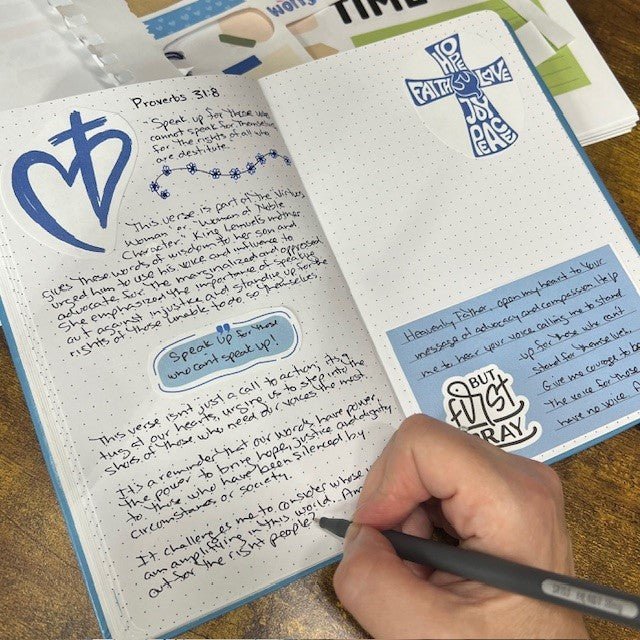 Proverbs 31:8
"Speak up for those who
cannot speak for themselves
for the rights of all who
are destitute.
This verse is part of the "Virtuous
Woman" or "Woman of Noble
Character." King Lemuel's mother
gives these words of wisdom to her son and
urged him to use his voice and influence to
advocate for the marginalized and oppressed.
She emphasized the importance of speaking
out against injustice and standing up for the
rights of those unable to do so themselves.
Speak up for those
who can't speak up!
This verse isn't just a call to action, it's a
tug at our hearts, urging us to step into the
shoes of those who need our voices the most
It's a reminder that our words have power,
the power to bring hope, justice and dignity
to those who have been silenced by
circumstances or society.
It challenges me to consider whose
am amplifying in this world. Am
out for the right people?
HOPE
FAITH
LOVE
JOY
PEACE
Heavenly Father, open my heart to Your
message of advocacy and compassion. Help
me to hear your voice calling me to stand
up for those who can't
stand for themselves.
Give me courage to be
the voice for those
have no voice.
BUT
first
PRAY
worry
TIME